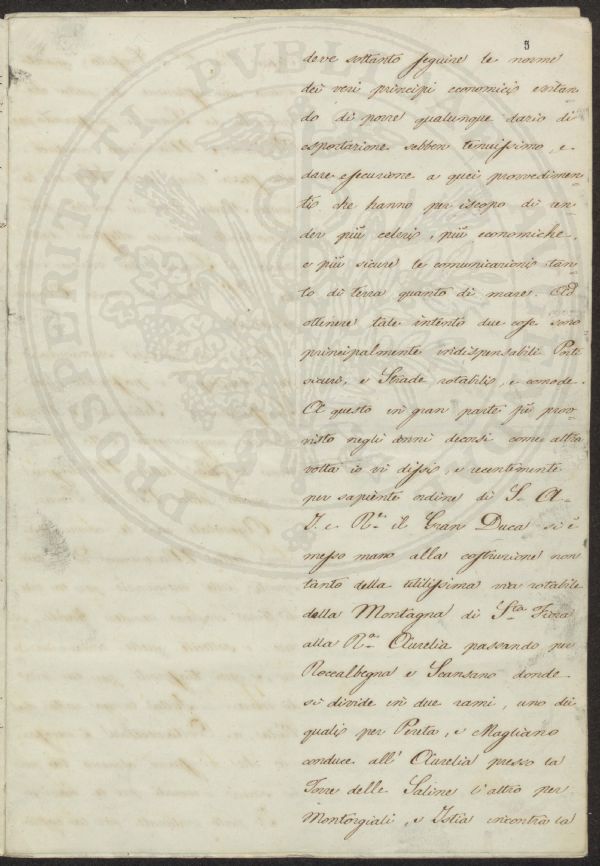 5
deve soltanto seguire le norme
dei veri principi economici evitan
do di porre qualunque dazio di
esportazione sebben tenuissimo, e
dare esecuzione a quei provvedimen
ti che hanno per iscopo di ren
der più celeri, più economiche,
e più sicure le comunicazioni tan
to di terra quanto di mare. Ad
ottenere tale intento due cose sono
principalmente indispensabili Porti
sicuri, e Strade rotabili, e comode.
A questo in gran parte fù prov
visto negli anni decorsi come altra
volta io vi dissi, e recentemente
per sapiente ordine di S. A.
I. e R. il Gran Duca si è
messo mano alla costruzione non
tanto della utilissima via rotabile
della Montagna di S.ta Fiora
alla R.a Aurelia passando per
Roccalbegna e Scansano donde
si divide in due rami, uno dei
quali per Pereta, e Magliano
conduce all' Aurelia presso la
Torre delle Saline l'altro per
Montorgiali, e Istia incontra la
PROSPERITATI PUBLICAE